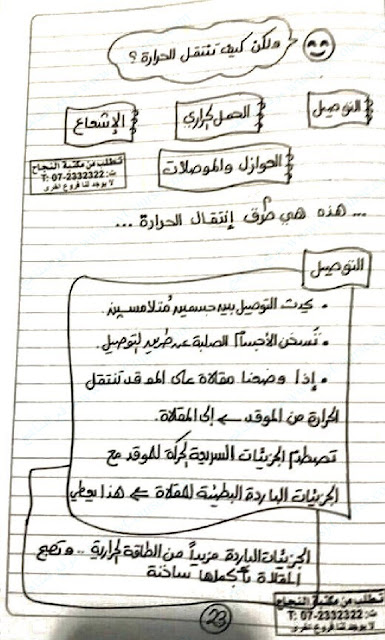 ولكن كيف تنتقل الحرارة ؟
التوصيل
الحمل الحراري
الإشعاع
العوازل والموصلات
تطلب من مكتبة النجاح
ت: 07-2332322 :T
لا يوجد لنا فروع اخرى
... هذه هي طرق إنتقال الحرارة ...
التوصيل
• يحدث التوصيل بين جسمين متلامسين.
• تسخن الأجسام الصلبة عن طريق التوصيل.
• إذا وضعنا مقلاة على الموقد تنتقل
الحرارة من الموقد ← إلى المقلاة.
تصطدم الجزيئات السريعة الحركة للموقد مع
الجزيئات الباردة البطيئة للمقلاة ← هذا يعطي
الجزيئات الباردة مزيداً من الطاقة الحرارية .. وتصبح
المقلاة بأكملها ساخنة
تطلب من مكتبة النجاح
ت: 07-2332322 :T
لا يوجد لنا فروع اخرى
23